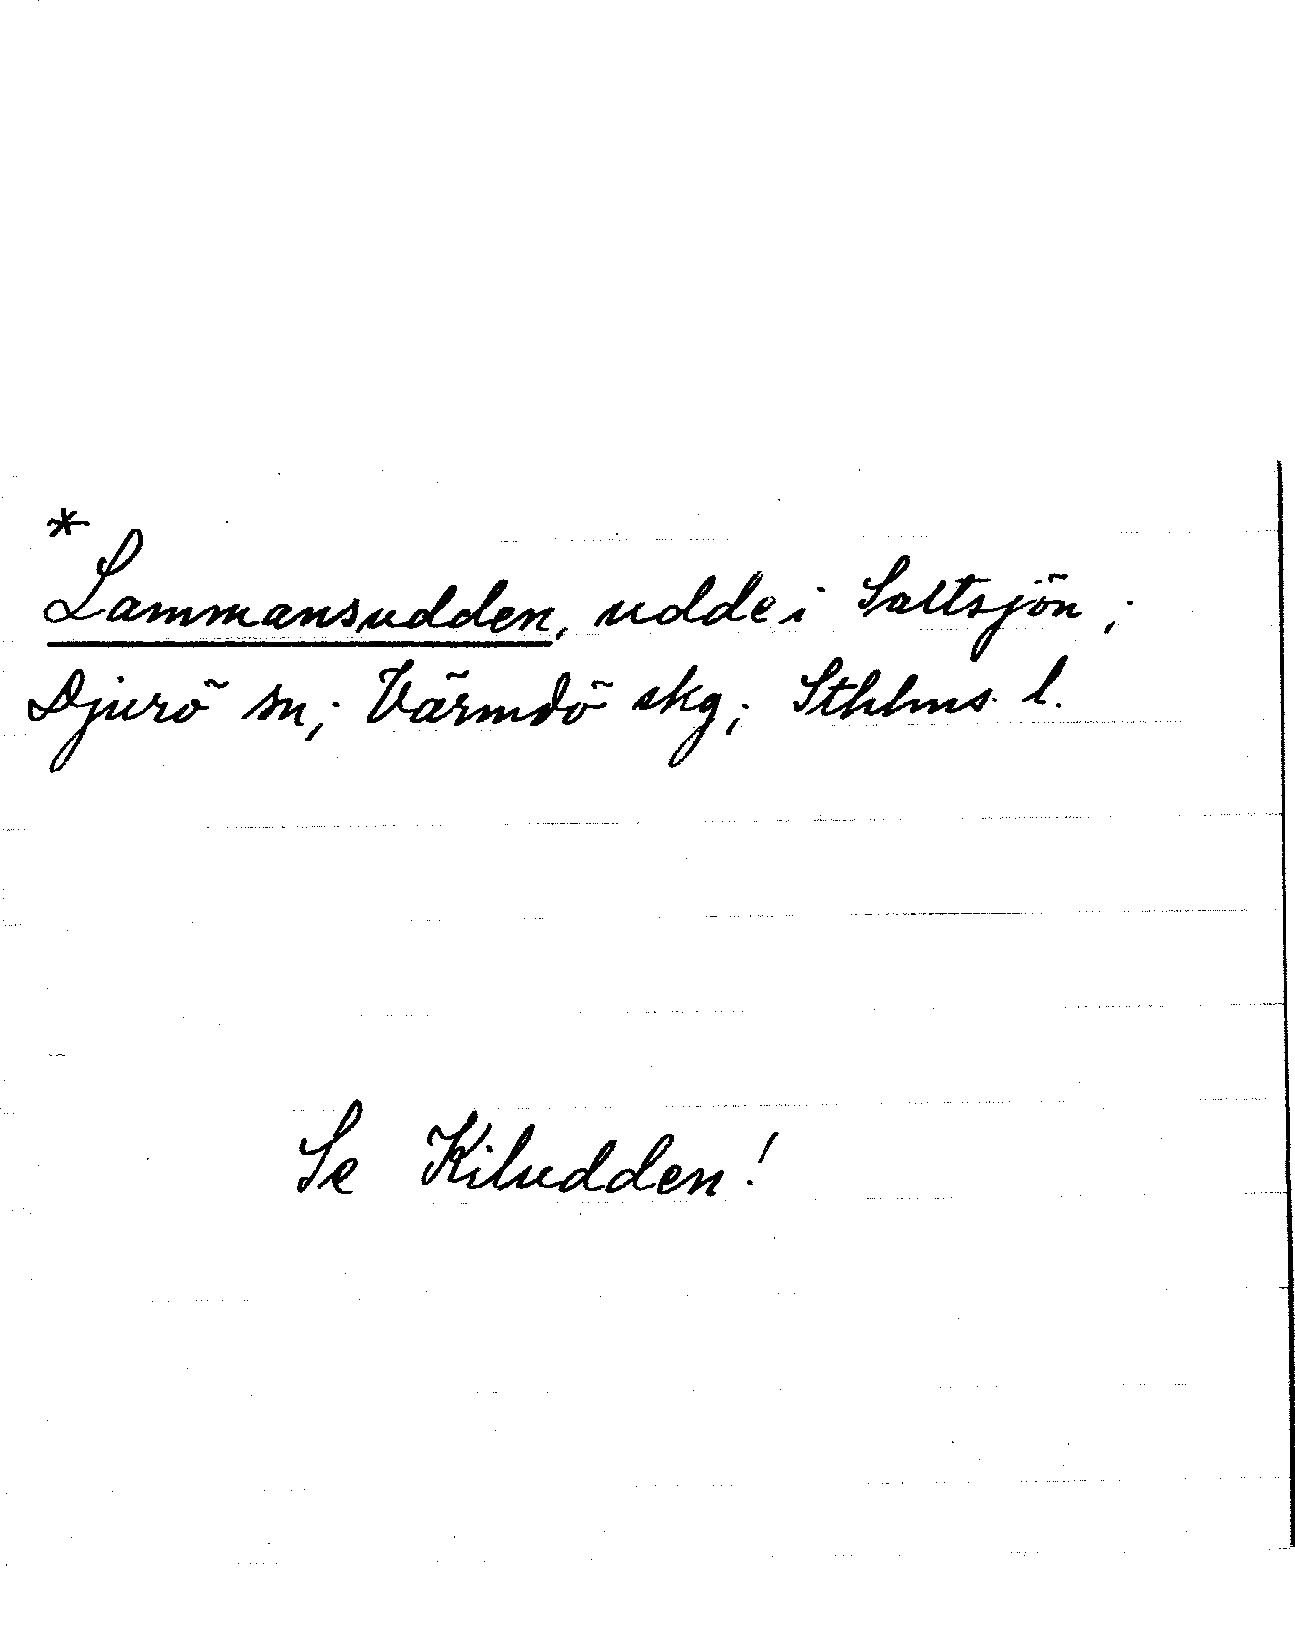 *
Lammansudden, udde i Saltsjön;
Djurö sn; Värmdö skg; Sthlms l.
Se Kiludden!